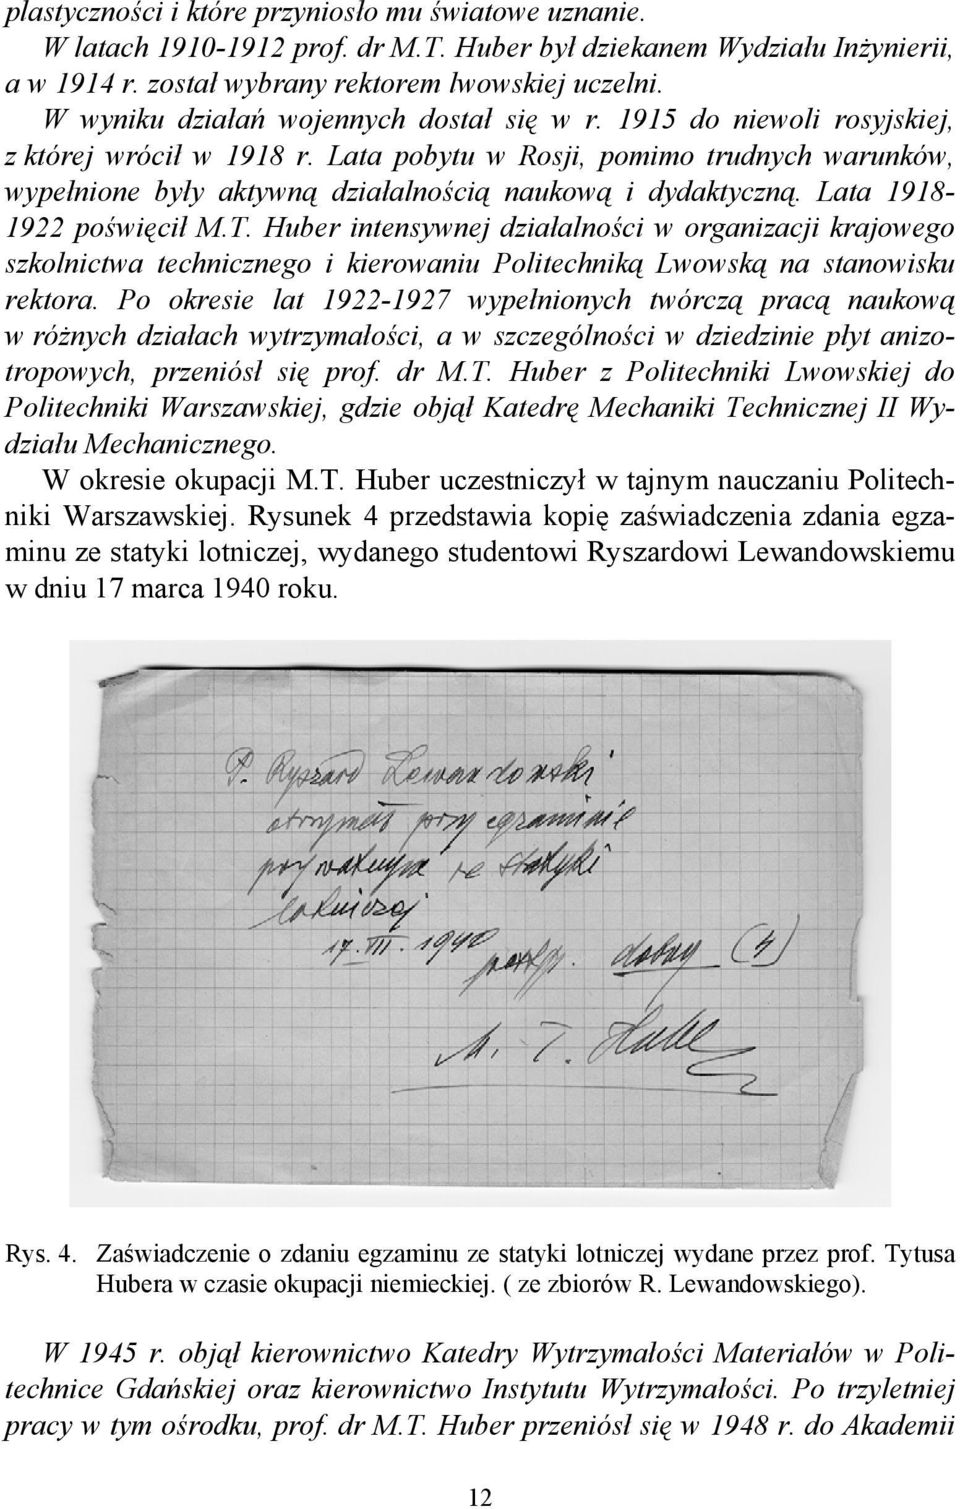 plastyczności i które przyniosło mu światowe uznanie.
W latach 1910-1912 prof. dr M.T. Huber był dziekanem Wydziału Inżynierii,
a w 1914 r. został wybrany rektorem lwowskiej uczelni.
W wyniku działań wojennych dostał się w r. 1915 do niewoli rosyjskiej,
z której wrócił w 1918 r. Lata pobytu w Rosji, pomimo trudnych warunków,
wypełnione były aktywną działalnością naukową i dydaktyczną. Lata 1918-
1922 poświęcił M.T. Huber intensywnej działalności w organizacji krajowego
szkolnictwa technicznego i kierowaniu Politechniką Lwowską na stanowisku
rektora. Po okresie lat 1922-1927 wypełnionych twórczą pracą naukową
w różnych działach wytrzymałości, a w szczególności w dziedzinie płyt anizo-
tropowych, przeniósł się prof. dr M.T. Huber z Politechniki Lwowskiej do
Politechniki Warszawskiej, gdzie objął Katedrę Mechaniki Technicznej II Wy-
działu Mechanicznego.
W okresie okupacji M.T. Huber uczestniczył w tajnym nauczaniu Politech-
niki Warszawskiej. Rysunek 4 przedstawia kopię zaświadczenia zdania egza-
minu ze statyki lotniczej, wydanego studentowi Ryszardowi Lewandowskiemu
w dniu 17 marca 1940 roku.
P. Ryszard Lewandowski
otrzymał przy egzaminie
prywatnym ze statyki
lotniczej
17.III.1940 postęp. dobry (4)
M. T. Huber
Rys. 4. Zaświadczenie o zdaniu egzaminu ze statyki lotniczej wydane przez prof. Tytusa
Hubera w czasie okupacji niemieckiej. ( ze zbiorów R. Lewandowskiego).
W 1945 r. objął kierownictwo Katedry Wytrzymałości Materiałów w Poli-
technice Gdańskiej oraz kierownictwo Instytutu Wytrzymałości. Po trzyletniej
pracy w tym ośrodku, prof. dr M.T. Huber przeniósł się w 1948 r. do Akademii
12